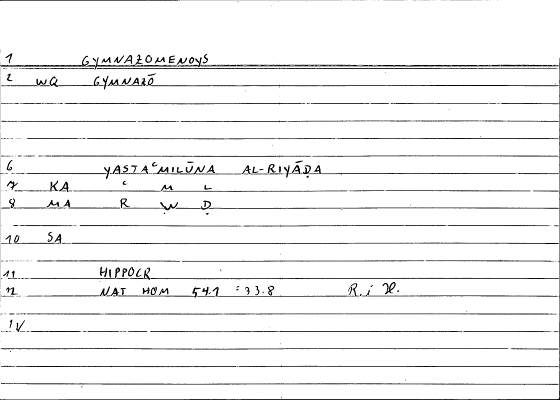 1 GYMNAZOMENOYS
2 WQ GYMNAZŌ
6 YASTAʿMILŪNA AL-RIYĀḌA
7 KA ʿ M L
8 MA R W Ḍ
10 SA
11 HIPPOCR
12 NAT HOM 54.1 :33.8 R. i H.
1V